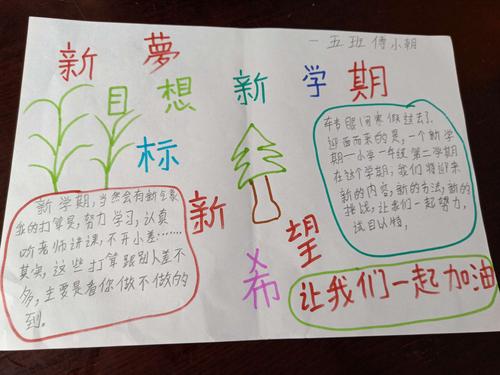 一五班傅小朝
新夢想新学期
目标
新希望
新学期,当然会有新气象
我的打算是,努力学习,认真
听老师讲课,不开小差……
其实,这些打算跟别人差不
多,主要是看你做不做的
到。
转眼间寒假过去了,
迎面而来的是,一个新学
期一小学一年级第二学期
在这个学期,我们将迎来
新的内容,新的方法,新的
挑战,让我们一起努力,
拭目以待,
让我们一起加油